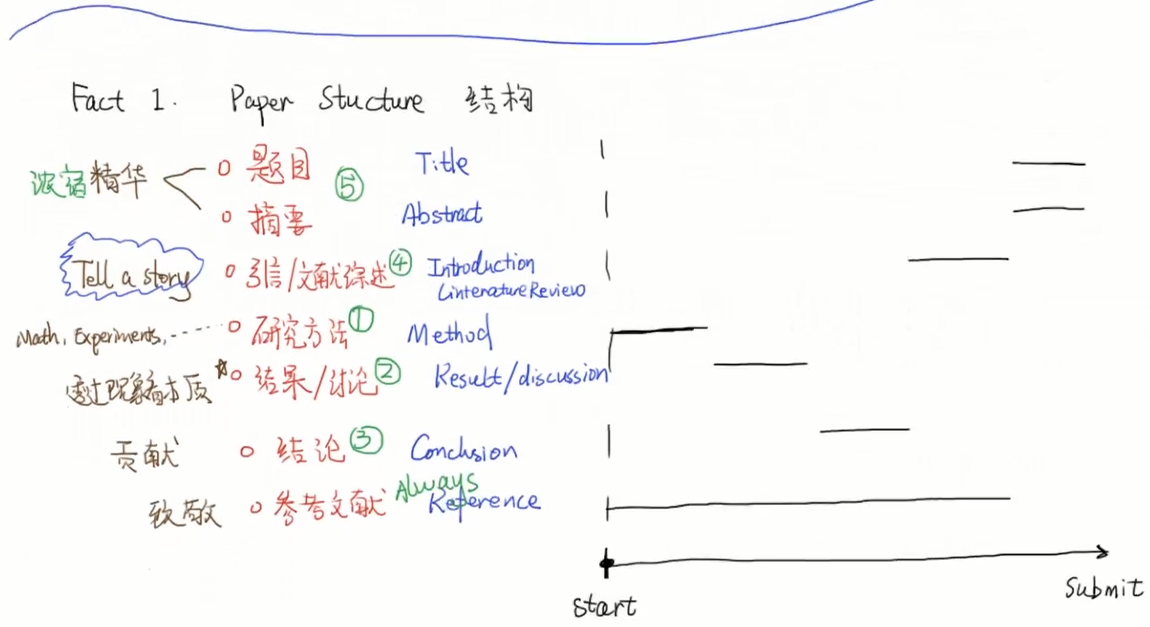 Fact 1. Paper Stucture 结构
浓宿精华 o 题目 ⑤ Title
o 摘要 Abstract
Tell a story o 引言/文献综述 ④ Introduction
LintenatureReview
Math, Experiments, ------ o 研究方法 ① Method
透过现象看本质 * o 结果/讨论 ② Result/discussion
贡献 o 结论 ③ Conclusion
致敬 o 参考文献 Always Reference
start
Submit